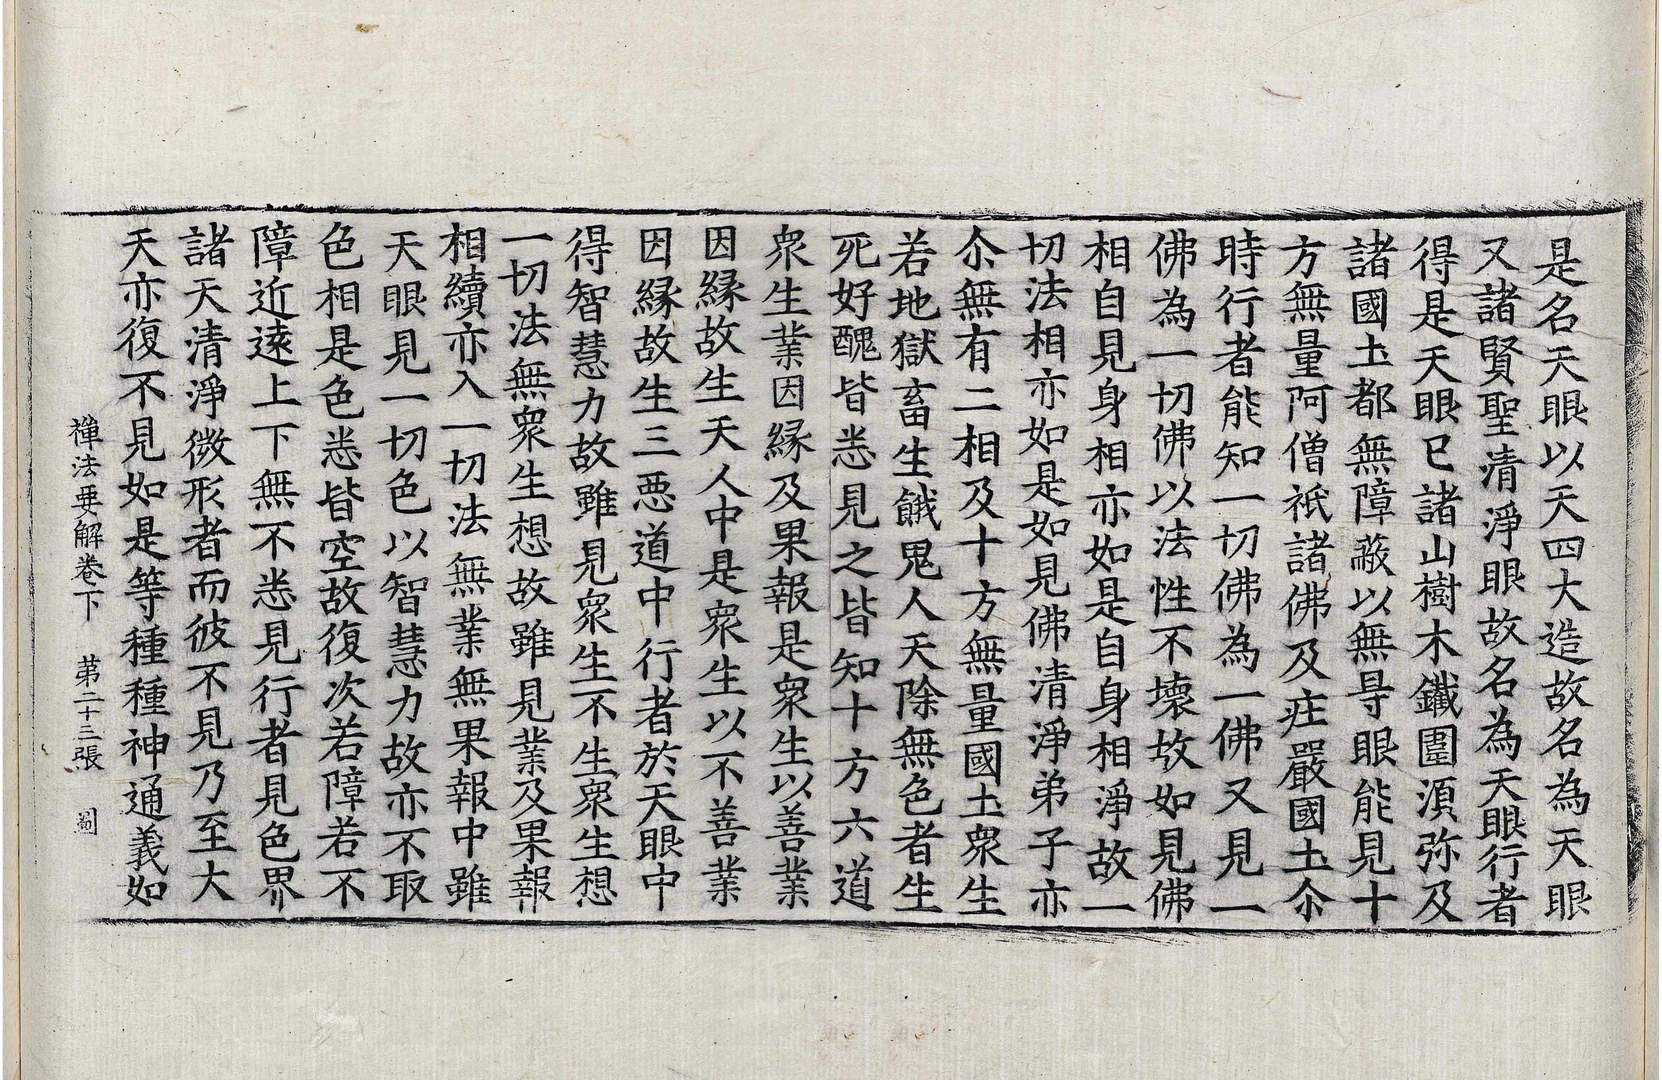 是名天眼以天四大造故名為天眼
又諸賢聖清淨眼故名為天眼行者
得是天眼已諸山樹木鐵圍湏弥及
諸國土都無障蔽以無㝵眼能見十
方無量阿僧祇諸佛及庄嚴國土尒
時行者能知一切佛為一佛又見一
佛為一切佛以法性不壞故如見佛
相自見身相亦如是自身相淨故一
切法相亦如是如見佛清淨弟子亦
尒無有二相及十方無量國土衆生
若地獄畜生餓鬼人天除無色者生
死好醜皆悉見之皆知十方六道
衆生業因緣及果報是衆生以善業
因緣故生天人中是衆生以不善業
因緣故生三惡道中行者於天眼中
得智慧力故雖見衆生不生衆生想
一切法無衆生想故雖見業及果報
相續亦入一切法無業無果報中雖
天眼見一切色以智慧力故亦不取
色相是色悉皆空故復次若障若不
障近遠上下無不悉見行者見色界
諸天清淨微形者而彼不見乃至大
天亦復不見如是等種種神通義如
禪法要解卷下　第二十三張